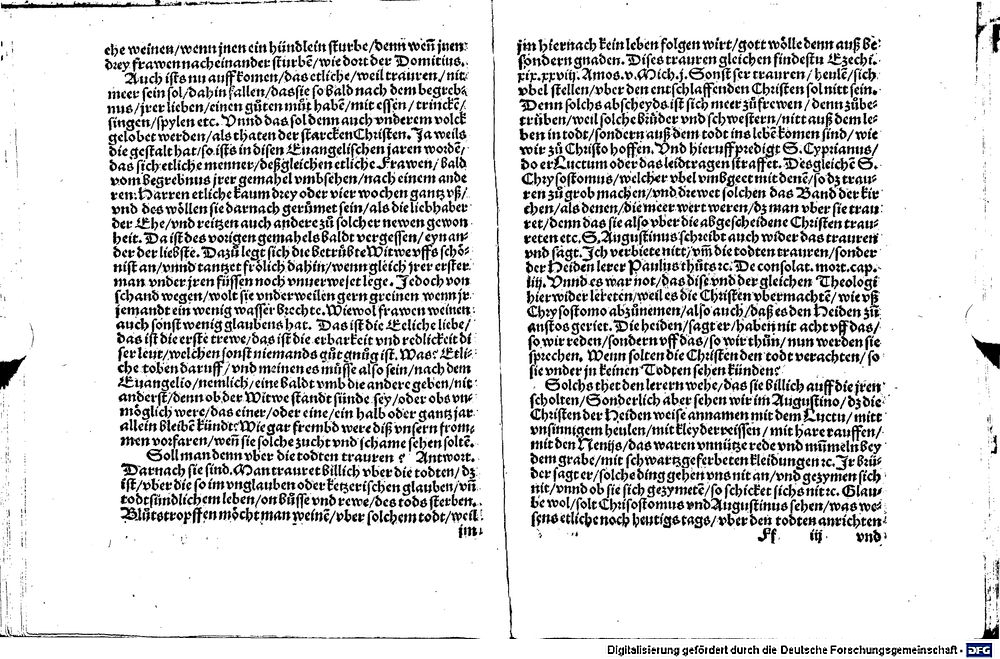 ehe weinen/wenn jnen ein hündlein sturbe/denn weñ jnen
drey frawen nacheinander sturbẽ/wie dort der Domitius.
Auch ists nu auff komen/das etliche/weil trauren/nit
meer sein sol/dahin fallen/das sie so bald nach dem begreb-
nus/jrer lieben/einen gůten můt habẽ/mit essen/trinckẽ/
singen/spylen etc. Vnnd das sol denn auch vnderem volck
gelobet werden/als thaten der starcken Christen. Ja weils
die gestalt hat/so ists in disen Euangelischen jaren wordẽ/
das sich etliche menner/deßgleichen etliche Frawen/bald
vom begrebnus jrer gemahel vmbsehen/nach einem ande
ren: Harren etliche kaum drey oder vier wochen gantz vß/
vnd des wöllen sie darnach gerůmet sein/als die liebhaber
der Ehe/vnd reitzen auch andere zů solcher newen gewon
heit. Da ist des vorigen gemahels baldt vergessen/eyn an-
der der liebste. Dazů legt sich die betrůbte Witwe vffs schö-
nist an/vnnd tantzet frölich dahin/wenn gleich jrer erster
man vnder jren füssen noch vnuerweset lege. Jedoch von
schand wegen/wolt sie vnderweilen gern greinen wenn jr
jemandt ein wenig wasser brechte. Wiewol frawen weinen
auch sonst wenig glaubens hat. Das ist die Eeliche liebe/
das ist die erste trewe/das ist die erbarkeit vnd redlickeit di
ser leut/welchen sonst niemands gůt gnůg ist. Was? Etli-
che toben daruff/vnd meinen es müsse also sein/nach dem
Euangelio/nemlich/eine baldt vmb die andere geben/nit
anderst/denn ob der Witwe standt sünde sey/oder obs vn-
möglich were/das einer/oder eine/ein halb oder gantz jar
allein bleibẽ kündt? Wie gar frembd were diß vnsern from-
men vorfaren/weñ sie solche zucht vnd schame sehen soltẽ.
Soll man denn vber die todten trauren? Antwort.
Darnach sie sind. Man trauret billich vber die todten/dz
ist/vber die so im vnglauben oder ketzerischen glauben/vñ
todtsündlichem leben/on bůsse vnd rewe/des tods sterben.
Blůtstropffen möcht man weinẽ/vber solchem todt/weil
jm
jm hiernach kein leben folgen wirt/gott wölle denn auß be-
sondern gnaden. Dises trauren gleichen findestu Ezechi.
xix.xxviij. Amos.v. Mich.j. Sonst ser trauren/heulẽ/sich
vbel stellen/vber den entschlaffenden Christen sol nitt sein.
Denn solchs abscheyds ist sich meer zůfrewen/denn zůbe-
trüben/weil solche brůder vnd schwestern/nitt auß dem le-
ben in todt/sondern auß dem todt ins lebẽ komen sind/wie
wir zů Christo hoffen. Vnd hieruff predigt S. Cyprianus/
do er Luctum oder das leidtragen straffet. Desgleichẽ S.
Chrysostomus/welcher vbel vmbgeet mit denẽ/so dz trau-
ren zů grob machen/vnd drewet solchen das Band der kir
chen/als denen/die meer wert weren/dz man vber sie trau
ret/denn das sie also vber die abgescheidene Christen trau-
reten etc. S. Augustinus schreibt auch wider das trauren
vnd sagt. Ich verbiete nitt/vm̃ die todten trauren/sonder
der Heiden lerer Paulus thůts ꝛc. De consolat. mort. cap.
iiij. Vnnd es war not/das dise vnd der gleichen Theologi
hier wider lereten/weil es die Christen vbermachtẽ/wie vß
Chrysostomo abzůnemen/also auch/daß es den Heiden zů
anstos geriet. Die heiden/sagt er/haben nit acht vff das/
so wir reden/sondern vff das/so wir thůn/nun werden sie
sprechen. Wenn solten die Christen den todt verachten/so
sie vnder jn keinen Todten sehen künden?
Solchs thet den lerern wehe/das sie billich auff die jren
scholten/Sonderlich aber sehen wir im Augustino/dz die
Christen der Heiden weise annamen mit dem Luctu/mitt
vnsinnigem heulen/mit kleyder reissen/mit hare rauffen/
mit den Nenijs/das waren vnnütze rede vnd mum̃eln bey
dem grabe/mit schwartz geferbeten kleidungen ꝛc. Ir brü-
der sagt er/solche ding gehen vns nit an/vnd gezymen sich
nit/vnnd ob sie sich gezymetẽ/so schicket sichs nit ꝛc. Glau-
be wol/solt Chrisostomus vnd Augustinus sehen/was we-
sens etliche noch heutigs tags/vber den todten anrichten
Ff iij vnd
Digitalisierung gefördert durch die Deutsche Forschungsgemeinschaft - DFG